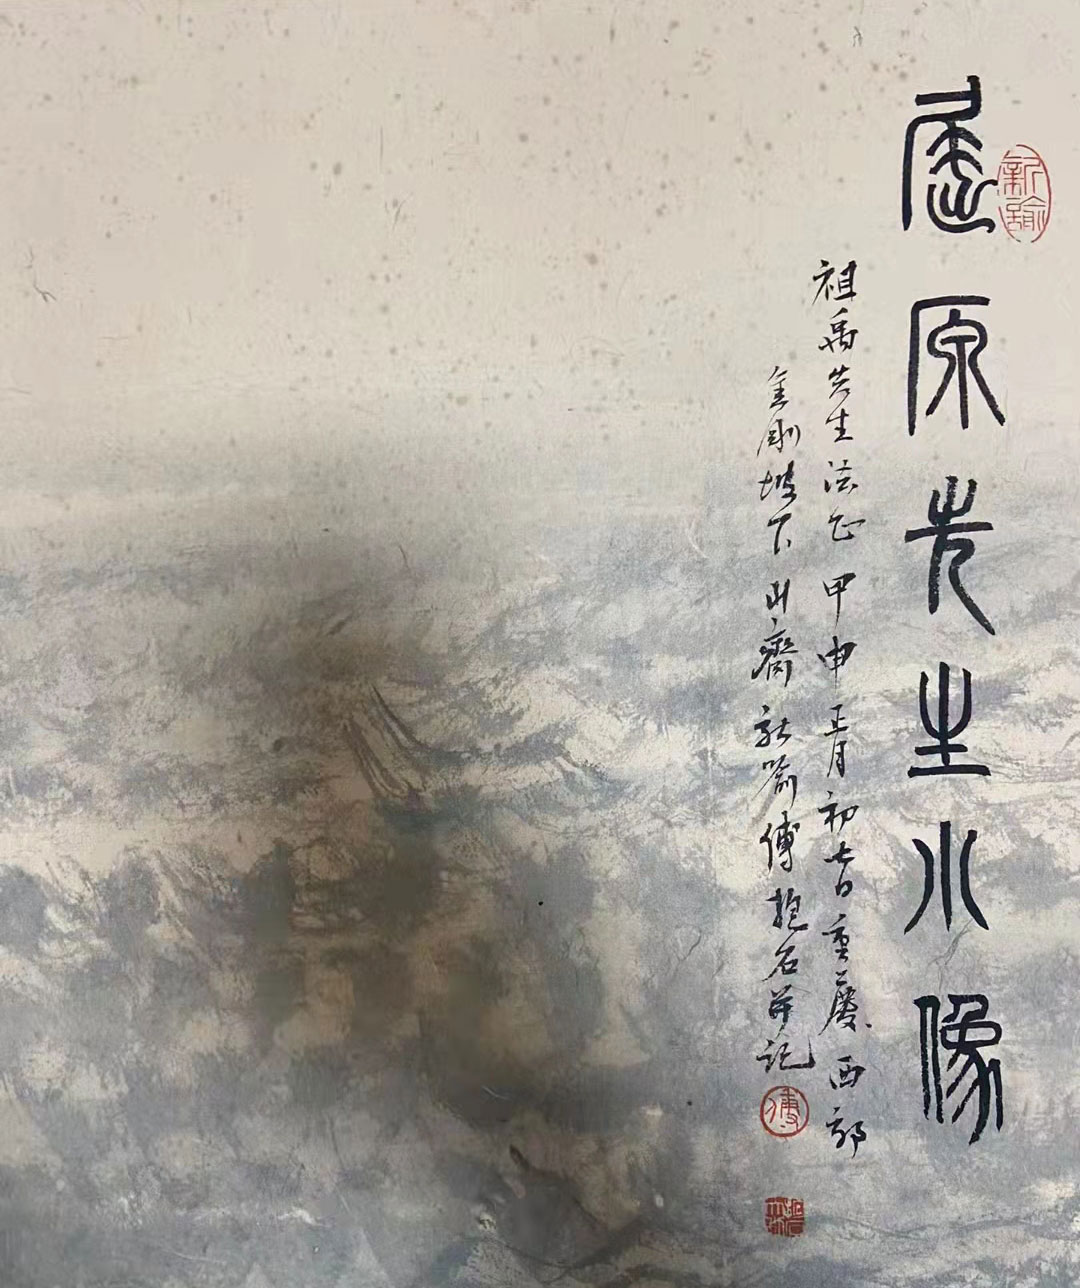 新喻
屈原先生小像
祖禹先生法正 甲申正月初七日重慶西郊
金剛坡下山齋 新喻傅抱石并記
傅